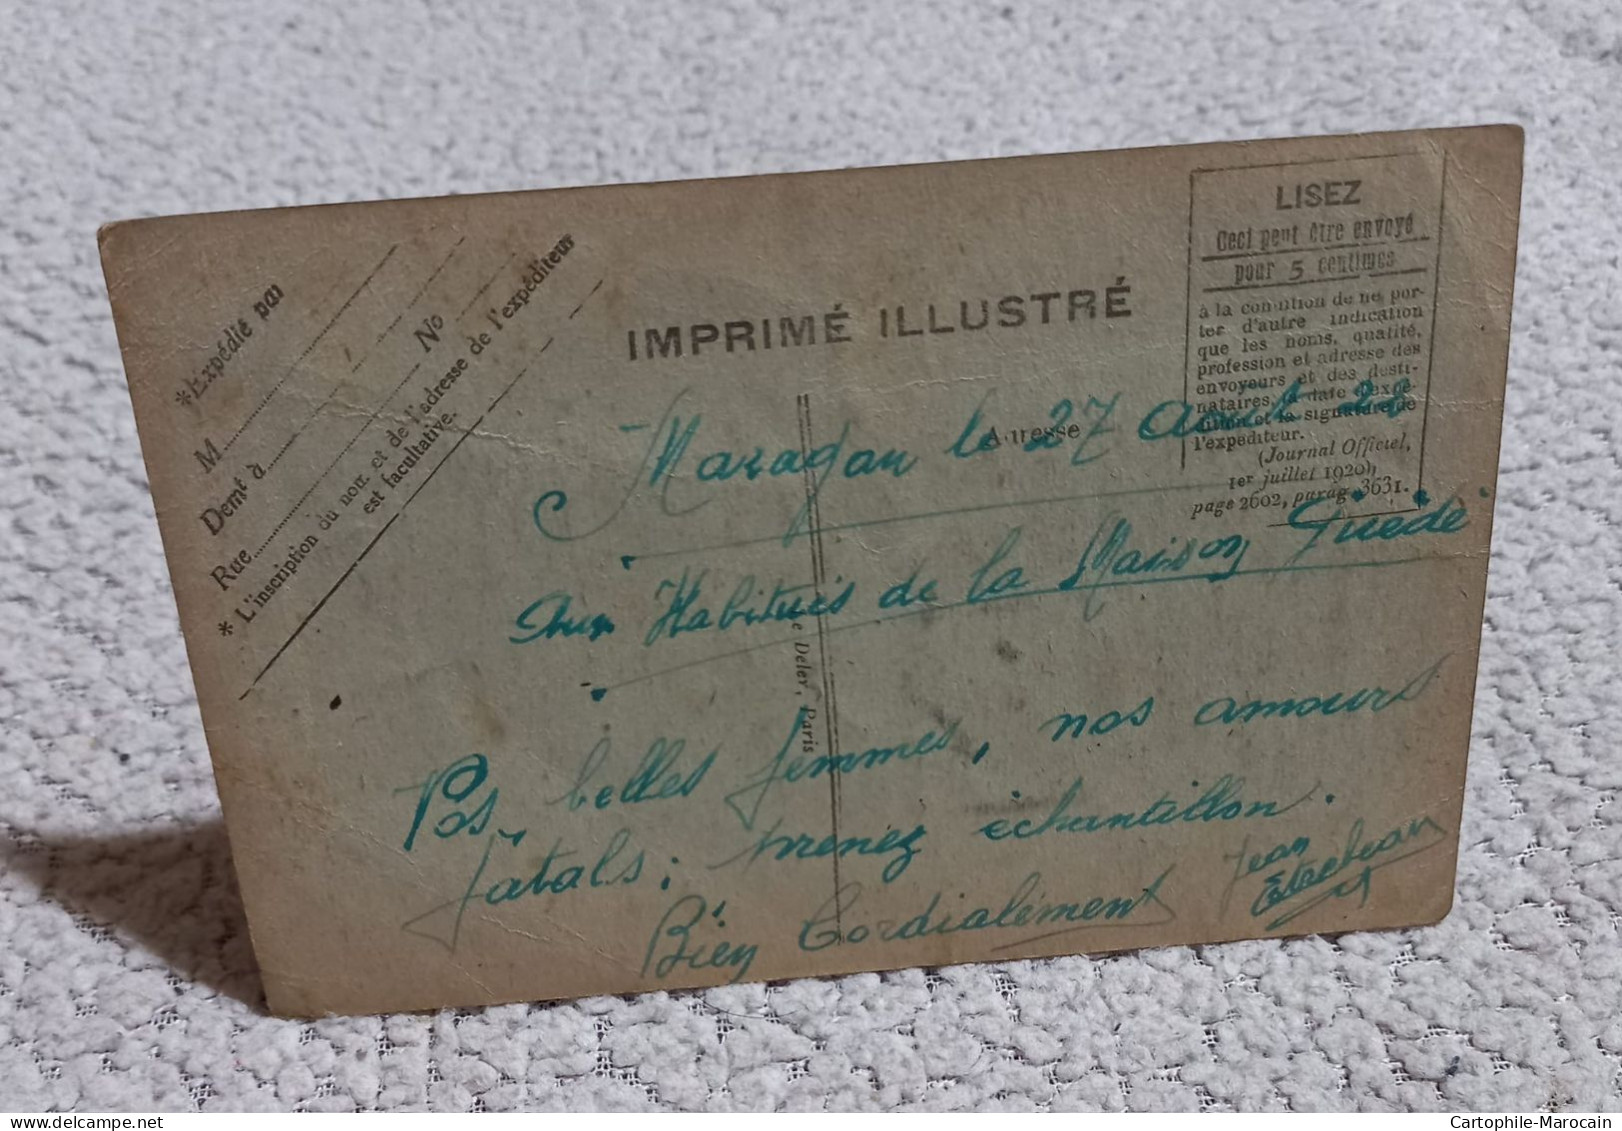 *Expédié par
M
Demt à
No
Rue
* L'inscription du nom et de l'adresse de l'expéditeur
est facultative.
IMPRIMÉ ILLUSTRÉ
LISEZ
Ceci peut être envoyé
pour 5 centimes
à la condition de ne por-
ter d'autre indication
que les noms, qualité,
profession et adresse des
envoyeurs et des desti-
nataires, la date d'expé-
dition et la signature de
l'expéditeur.
(Journal Officiel,
1er juillet 1920),
page 2602, parag. 3631.
Adresse
Mazagan le 27 Août
Aux Habitués de la Maison Guédé
Deley, Paris
Pas belles femmes, nos amours
fatals; prenez échantillon.
Bien Cordialement
Jean